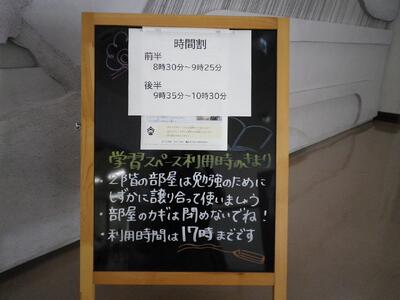 時間割
前半
8時30分～9時25分
後半
9時35分～10時30分
学習スペース利用時のきまり
・2階の部屋は勉強のために
しずかに譲り合って使いましょう
・部屋のカギは閉めないでね！
・利用時間は17時までです